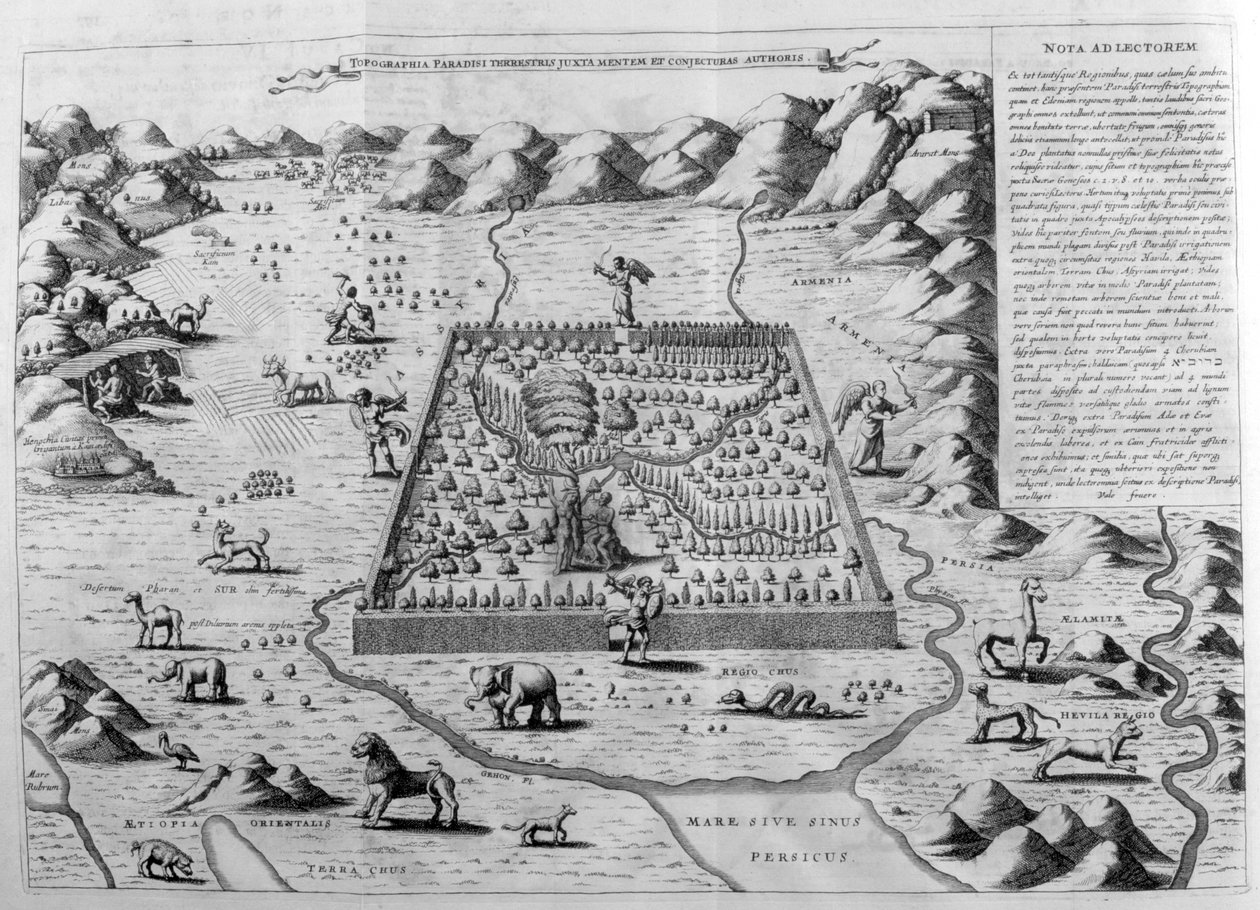 TOPOGRAPHIA PARADISI TERRESTRIS JUXTA MENTEM ET CONJECTURAS AUTHORIS.
NOTA AD LECTOREM
Ex tot tantisque Regionibus, quas cælum suo ambitu
continet, hanc præsentem Paradisi terrestris Topographiam
quam et Edeniam regionem appello, tantis laudibus sacri Geo-
graphi omnes extollunt, ut communi omnium sententia, cæteras
omnes bonitate terræ, ubertate frugum, omnisq generis
delicijs etiamnum longe antecellat, ut proinde Paradisus hic
a Deo plantatus nonnullas pristinæ suæ felicitatis notas
reliquisse videatur, cujus situm et topographiam hic præcise
juxta Sacræ Geneseos c. 2. v. 8. et 10. verba oculis præ-
pono curiosi Lectoris Hortum itaq voluptatis primo ponimus sub
quadrata figura, quasi typum cælestis Paradisi seu civi-
tatis in quadro juxta Apocalypseos descriptionem positæ;
Vides hic pariter fontem seu fluvium, qui inde in quadru-
plicem mundi plagam divisus post Paradisi irrigationem
extra quoq circumsitas regiones Havila, Æthiopiam
orientalem, Terram Chus, Assyriam irrigat; Vides
quoq arborem vitæ in medio Paradisi plantatam;
nec inde remotam arborem scientiæ boni et mali,
quæ causa fuit peccati in mundum introducti. Arborum
vero seriem non quod revera hunc situm habuerint;
sed qualem in horto voluptatis concipere licuit,
disposuimus. Extra vero Paradisum 4 Cherubim
juxta paraphrasin; (quos ipse כרוביא
Cherubaia in plurali numero vocant) ad 4 mundi
partes dispositos ad custodiendam viam ad lignum
vitæ flammeo versatilique gladio armatos consti-
tuimus. Deniq extra Paradisum Adæ et Evæ
ex Paradiso expulsorum ærumnas et in agris
excolendis labores, et ex Cain fratricidæ afflicti-
ones exhibuimus; et similia, quæ ubi sat superq
expressa sint, ita quoq ulteriori expositione non
indigent, unde lector omnia fusius ex descriptione Paradisi,
intelliget. Vale fruere.
Mons
Libanus
Ararat Mons
Sacrificium
Abel
Sacrificium
Kain
ASSYRIA
Eufrates
Tigris
ARMENIA
ARMENIA
Henochia Civitas prima
Gigantum a Kain condita
Desertum Pharan et SUR olim fertilissima
post Diluvium arenis oppleta
PERSIA
Phison Fl.
ÆLAMITÆ
REGIO CHUS
HEVILA REGIO
Sinai
Mons
Mare
Rubrum
GEHON. Fl.
ÆTIOPIA ORIENTALIS
TERRA CHUS
MARE SIVE SINUS
PERSICUS.